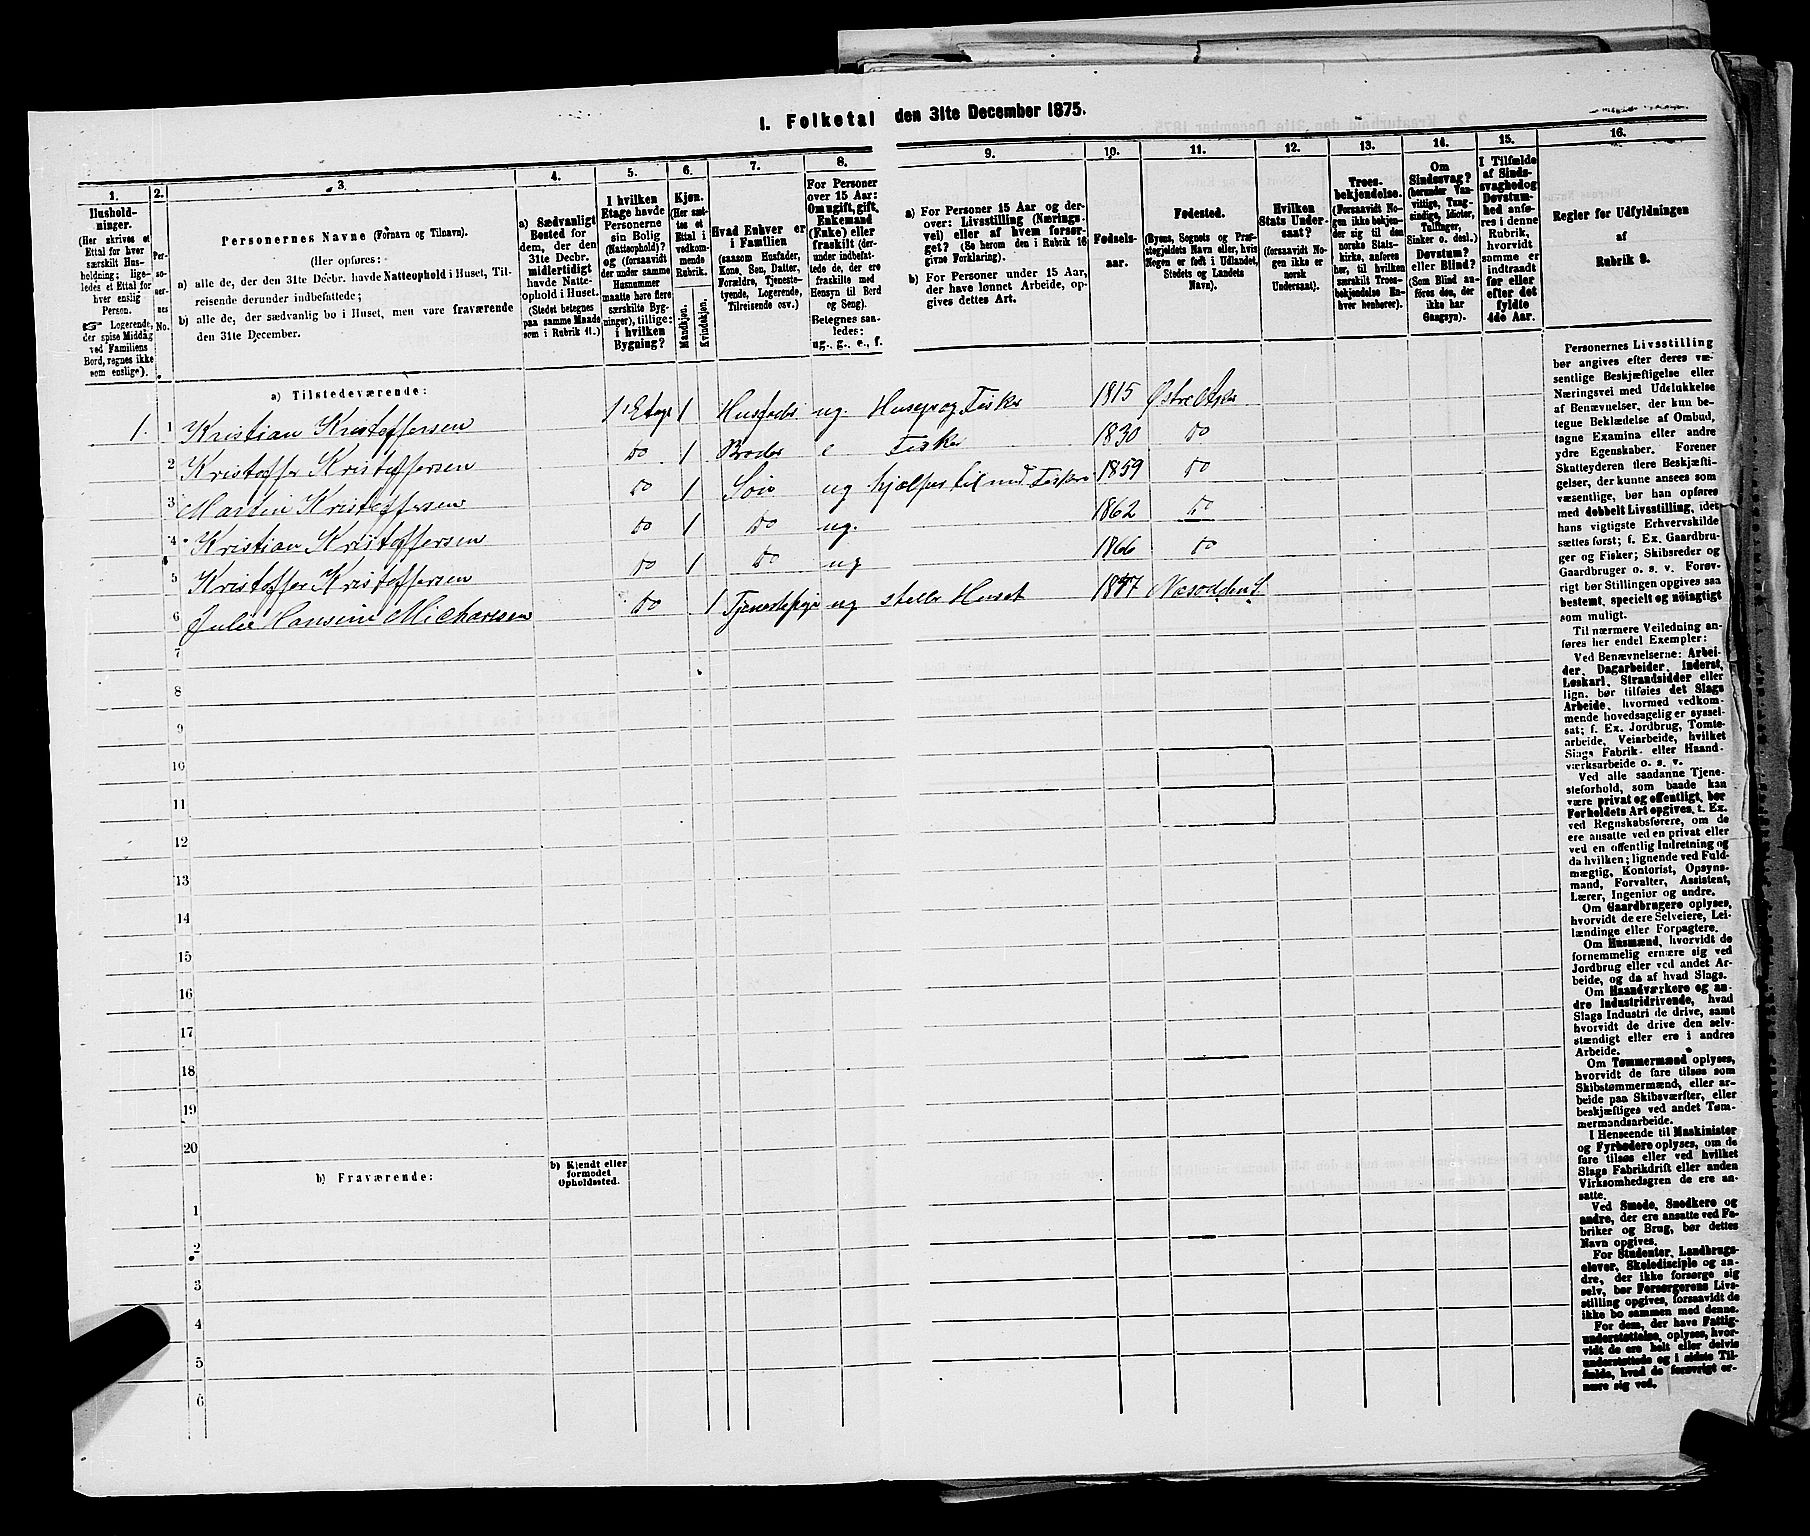 I. Folketal den 31te December 1875.
1. 2. 3. 4. 5. 6. 7. 8. 9. 10. 11. 12. 13. 14. 15. 16.
Hushold-
ninger.
(Her skrives et
Ettal for hver
særskilt Hus-
holdning; lige-
ledes et Ettal for
hver enslig
Person.
☞ Logerende,
der spise Middag
ved Familiens
Bord, regnes ikke
som enslige).
Per-
so-
ner-
nes
No.
Personernes Navne (Fornavn og Tilnavn).
(Her opføres:
a) alle de, der den 31te Decbr. havde Natteophold i Huset, Til-
reisende derunder indbefattede;
b) alle de, der sædvanlig bo i Huset, men vare fraværende
den 31te December.
a) Sædvanligt
Bosted for
dem, der den
31te Decbr.
midlertidigt
havde Natte-
ophold i Huset.
(Stedet betegnes
paa samme Maade
som i Rubrik 11.)
I hvilken
Etage havde
Personerne
sin Bolig
(Natteophold)?
og (forsaavidt
der under samme
Husnummer
maatte høre flere
særskilte Byg-
ninger), tillige:
i hvilken
Bygning?
Kjøn.
(Her sæt-
tes et
Ettal i
vedkom-
mende
Rubrik.
Mandkjøn.
Kvindekjøn.
Hvad Enhver er
i Familien
(saasom Husfader,
Kone, Søn, Datter,
Forældre, Tjeneste-
tyende, Logerende,
Tilreisende osv.)
For Personer
over 15 Aar:
Om ugift, gift,
Enkemand
(Enke) eller
fraskilt (der-
under indbefat-
tede de, der ere
fraskilte med
Hensyn til Bord
og Seng).
Betegnes saa-
ledes:
ug., g., e., f.
a) For Personer 15 Aar og der-
over: Livsstilling (Nærings-
vei) eller af hvem forsør-
get? (Se herom den i Rubrik 16
givne Forklaring).
b) For Personer under 15 Aar,
der have lønnet Arbeide, op-
gives dettes Art.
Fødsels-
aar.
Fødested.
(Byens, Sognets og Præ-
stegjeldets Navn eller, hvis
Nogen er født i Udlandet,
Stedets og Landets
Navn).
Hvilken
Stats Under-
saat?
(forsaavidt No-
gen ikke er
norsk
Undersaat).
Troes-
bekjendelse.
(Forsaavidt No-
gen ikke bekjen-
der sig til den
norske Stats-
kirke, anføres
her, til hvilken
særskilt Troes-
bekjendelse En-
hver henhører).
Om
Sindssvag?
(herunder Van-
vittige, Tung-
sindige, Idioter,
Tullinger,
Sinker o. desl.)
Døvstum?
eller Blind?
(Som Blind an-
føres den, der
ikke har
Gangsyn).
I Tilfælde
af Sinds-
svaghed og
Døvstum-
hed anfø-
res i denne
Rubrik,
hvorvidt
samme er
indtraadt
før eller
efter det
fyldte
4de Aar.
Regler for Udfyldningen
af
Rubrik 9.
a) Tilstedeværende:
1. 1 Kristian Kristoffersen 1 Etage 1 Husfader ug. Huseier og Fisker 1815 Østre Aker
2 Kristoffer Kristoffersen do 1 Broder e Fisker 1830 do
3 Martin Kristoffersen do 1 Søn ug hjælper til med Fiskeri 1859 do
4 Kristian Kristoffersen do 1 do ug. 1862 do
5 Kristoffer Kristoffersen do 1 do ug 1866 do
6 Julie Hansine Michaelsen do 1 Tjenestepige ug steller Huset 1857 Nesodden S.
7
8
9
10
11
12
13
14
15
16
17
18
19
20
b) Fraværende:
b) Kjendt eller
formodet
Opholdssted.
1
2
3
4
5
6
Personernes Livsstilling
bør angives efter deres væ-
sentlige Beskjæftigelse eller
Næringsvei med Udelukkelse
af Benævnelser, der kun be-
tegne Beklædelse af Ombud,
tagne Examina eller andre
ydre Egenskaber. Forener
Skatteyderen flere Beskjæfti-
gelser, der kunne ansees som
væsentlige, bør han opføres
med dobbelt Livsstilling, idet
hans vigtigste Erhvervskilde
sættes først; f. Ex. Gaardbru-
ger og Fisker; Skibsreder og
Gaardbruger o. s. v. Forøv-
rigt bør Stillingen opgives saa
bestemt, specielt og nøiagtigt
som muligt.
Til nærmere Veiledning an-
føres her endel Exempler:
Ved Benævnelserne: Arbei-
der, Dagarbeider, Inderst,
Løskarl, Strandsidder eller
lign. bør tilføies det Slags
Arbeide, hvormed vedkom-
mende hovedsagelig er syssel-
sat; f. Ex. Jordbrug, Tomte-
arbeide, Veiarbeide, hvilket
Slags Fabrik- eller Haand-
værksarbeide o. s. v.
Ved alle saadanne Tjene-
steforhold, som baade kan
være privat og offentligt, bør
Forholdets Art opgives, t. Ex.
ved Regnskabsførere, om de
ere ansatte ved en privat eller
ved en offentlig Indretning og
da hvilken; lignende ved Fuld-
mægtig, Kontorist, Opsyns-
mand, Forvalter, Assistent,
Lærer, Ingeniør og andre.
Om Gaardbrugere oplyses,
hvorvidt de ere Selveiere, Lei-
lændinge eller Forpagtere.
Om Husmænd, hvorvidt de
fornemmelig ernære sig ved
Jordbrug eller ved andet Ar-
beide, og da af hvad Slags.
Om Haandværkere og an-
dre Industridrivende, hvad
Slags Industri de drive, samt
hvorvidt de drive den selv-
stændigt eller ere i andres
Arbeide.
Om Tømmermænd oplyses,
hvorvidt de fare tilsøs som
Skibstømmermænd, eller ar-
beide paa Skibsværfter, eller
beskjæftiges ved andet Tøm-
mermandsarbeide.
I Henseende til Maskinister
og Fyrbødere oplyses, om de
fare tilsøs eller ved hvilket
Slags Fabrikdrift eller anden
Virksomhedsgren de ere an-
satte.
Ved Smede, Snedkere og
andre, der ere ansatte ved Fa-
briker og Brug, bør dettes
Navn opgives.
For Studenter, Landbrugs-
elever, Skoledisciple og an-
dre, der ikke forsørge sig
selv, bør Forsørgerens Livs-
stilling opgives, forsaavidt de
ikke bo sammen med denne.
For dem, der have Fattig-
understøttelse, oplyses, hvor-
vidt de ere helt eller delvis
understøttede og i sidste Til-
fælde, hvad de forøvrigt er-
nære sig ved.